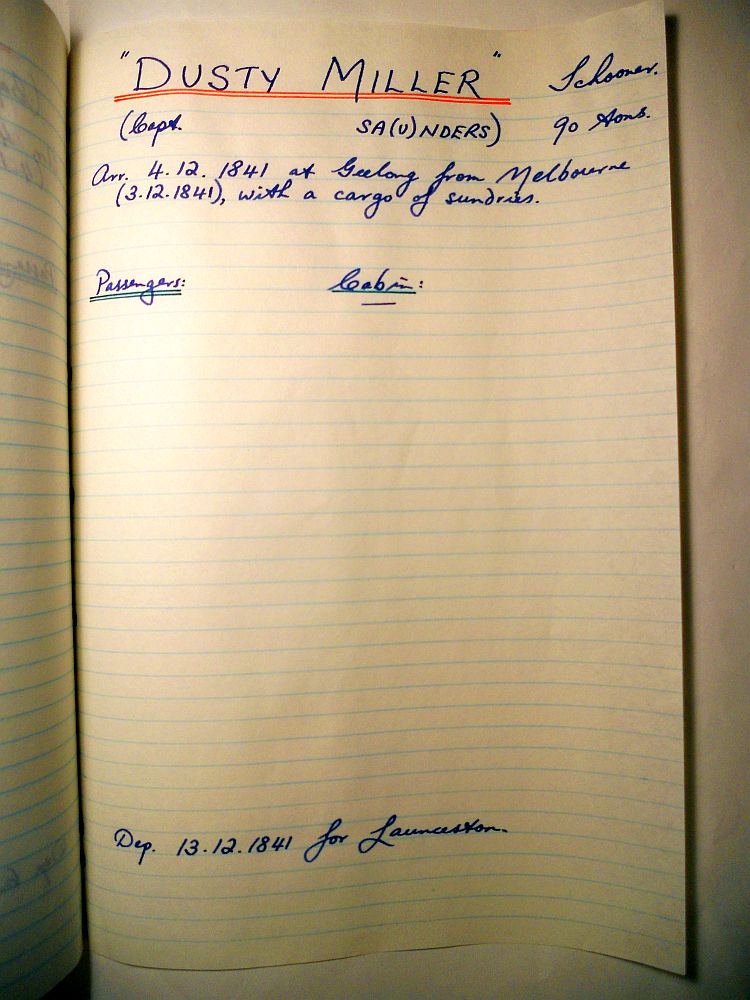 "DUSTY MILLER" Schooner.
(Capt. SA(U)NDERS) 90 tons.
Arr. 4.12.1841 at Geelong from Melbourne
(3.12.1841), with a cargo of sundries.
Passengers: Cabin:
Dep. 13.12.1841 for Launceston.